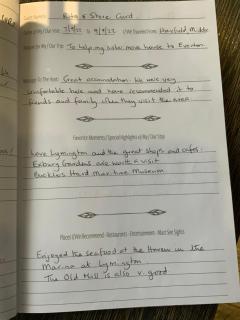 Guest Name(s) Rita & Steve Card
Date of My / Our Visit: 7/9/22 to 9/9/22 I / We Travelled From: Hayfield M.ddx
Reason for My / Our Trip: To help my sister move house to Everton.
Message To The Host: Great accomodation. We were very
comfortable here and have recommended it to
friends and family when they visit the area
Favorite Moments / Special Highlights of My / Our Stay
Love Lymington and the great shops and cafes.
Exbury Gardens are worth a visit
Bucklers Hard Maritime Museum
Places I / We Recommend - Restaurants - Entertainment - Must See Sights
Enjoyed the seafood at the Haven in the
Marina at Lymington
The Old Mill is also v. good